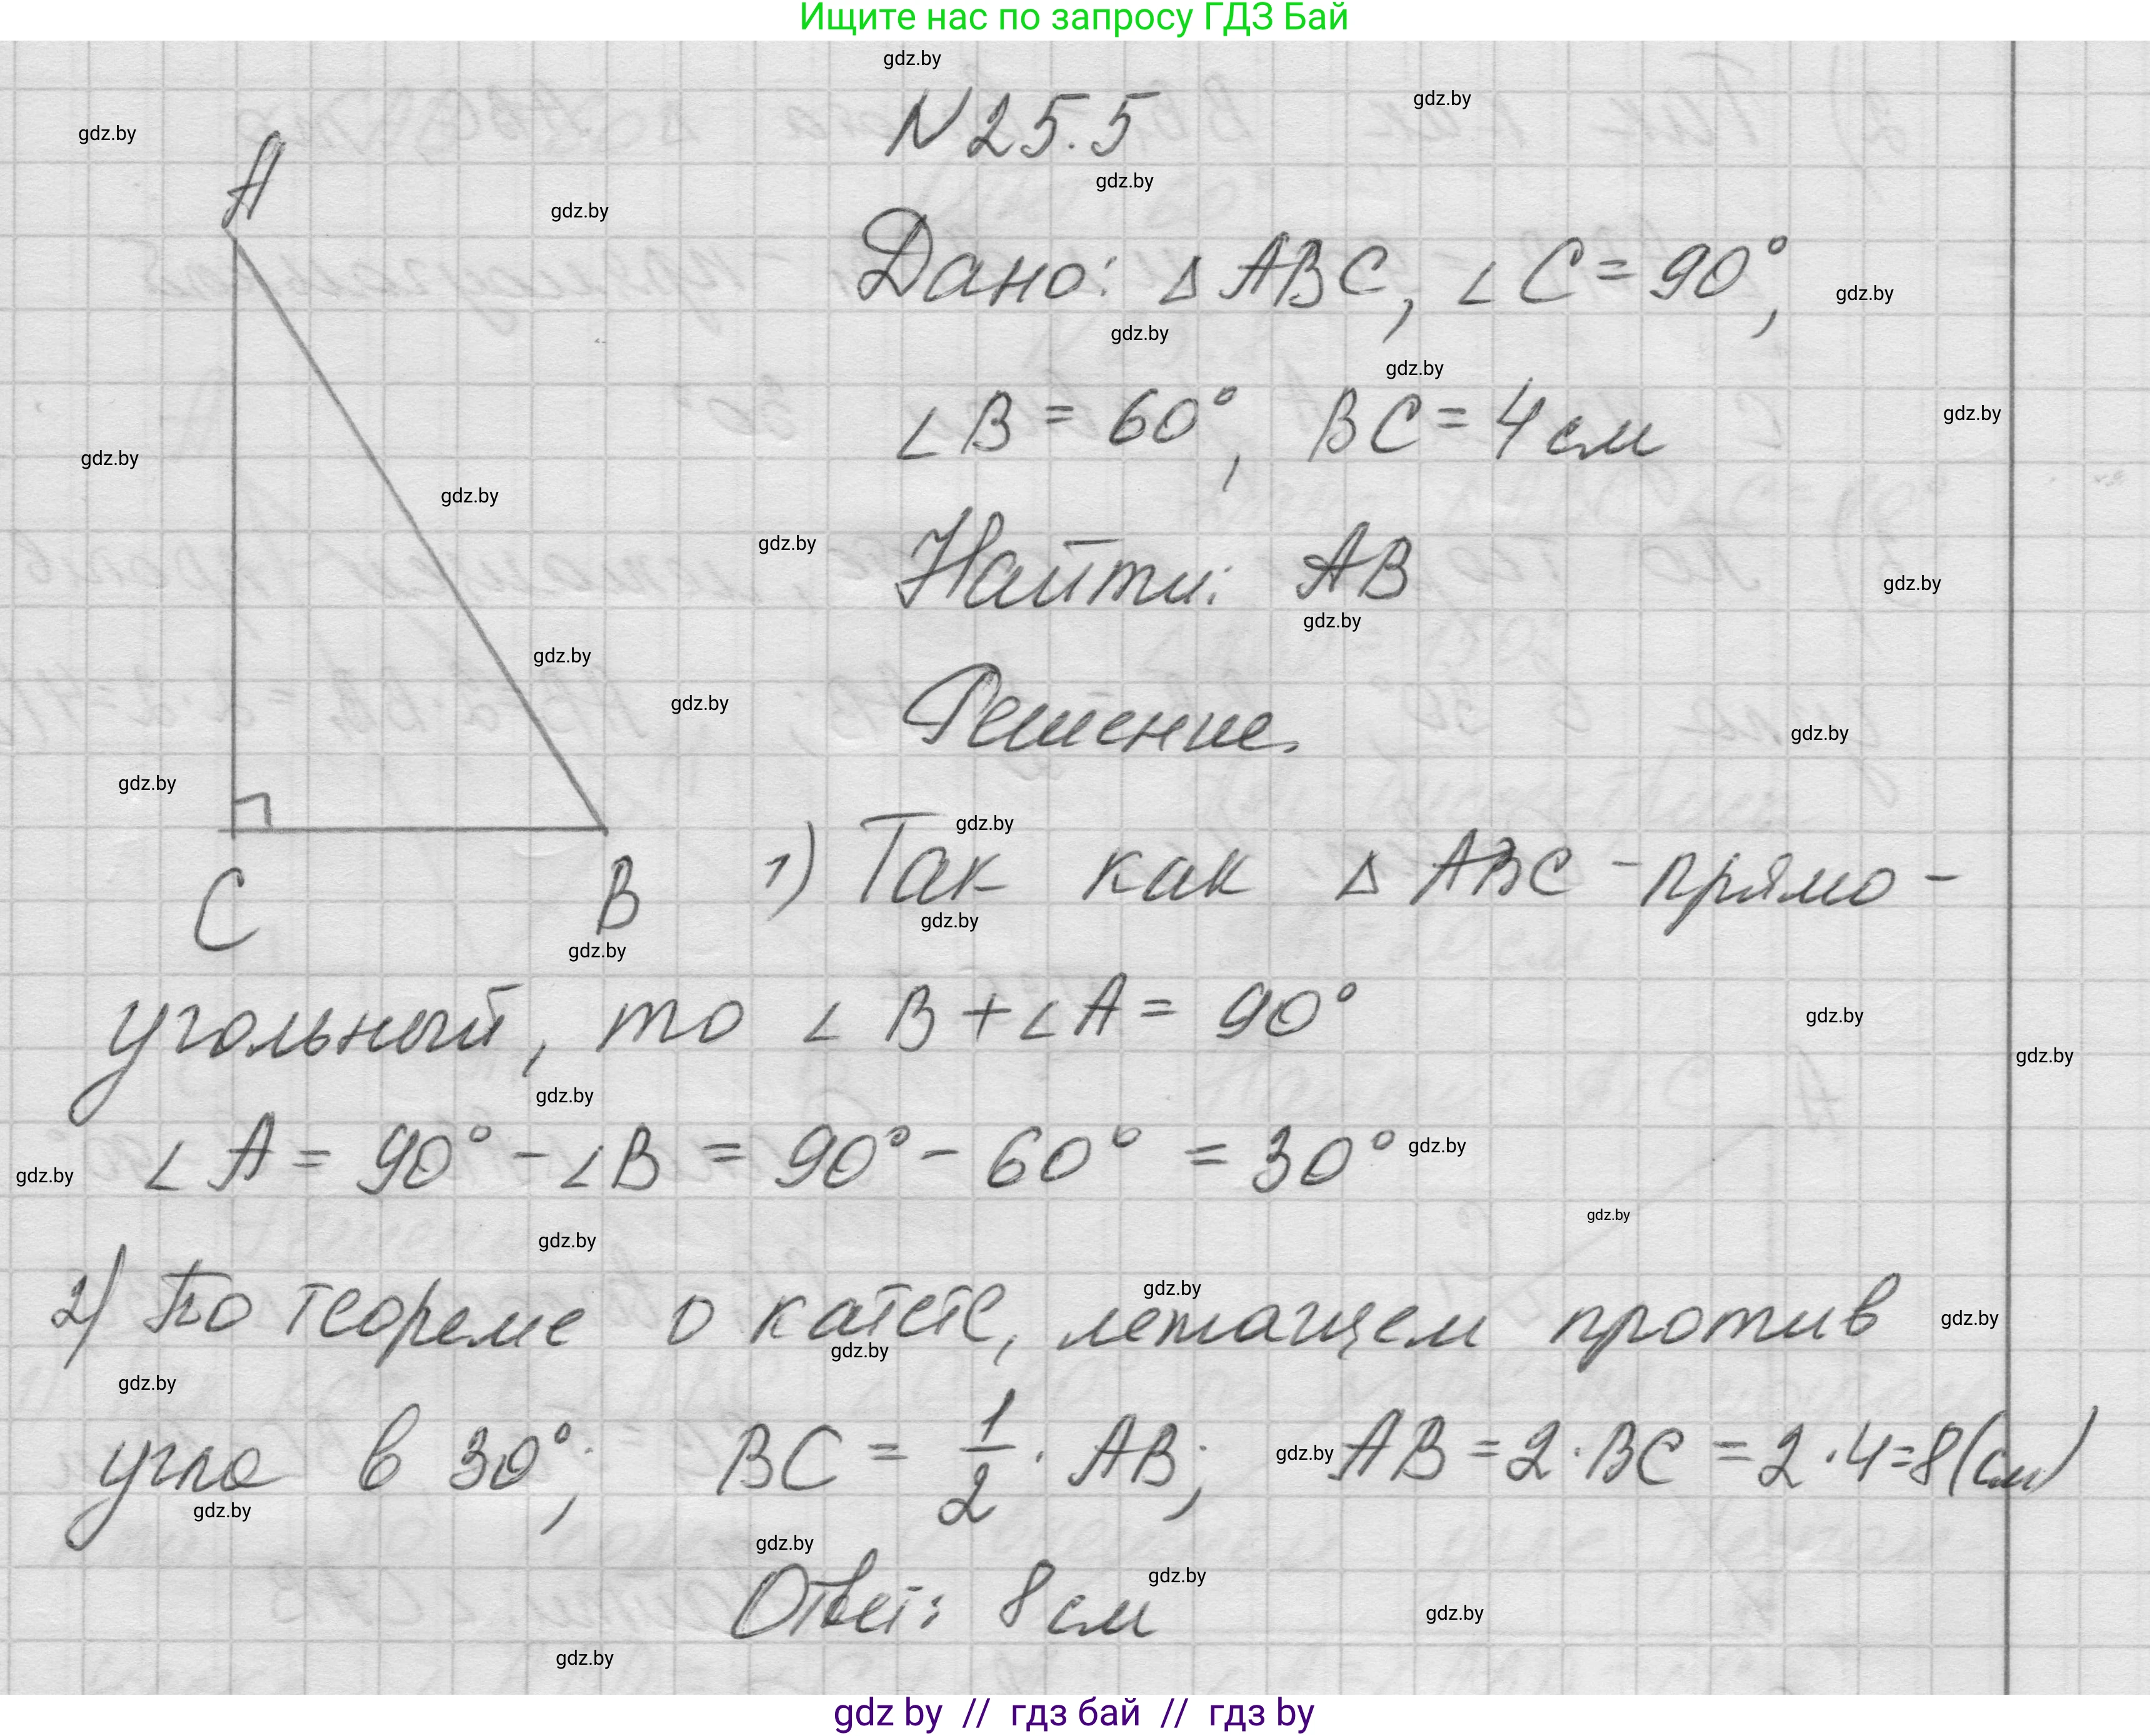 Ищите нас по запросу ГДЗ Бай
gdz.by
N 25.5
gdz.by
gdz.by
A
gdz.by
gdz.by
Дано: △ ABC, ∠ C = 90°,
gdz.by
gdz.by
gdz.by
∠ B = 60°, BC = 4 см
gdz.by
gdz.by
gdz.by
gdz.by
Найти: AB
gdz.by
gdz.by
gdz.by
gdz.by
Решение.
gdz.by
gdz.by
gdz.by
C B 1) Так как △ ABC - прямо-
gdz.by
gdz.by
угольный, то ∠ B + ∠ A = 90°
gdz.by
gdz.by
gdz.by
∠ A = 90° - ∠ B = 90° - 60° = 30°
gdz.by
gdz.by
gdz.by
gdz.by
gdz.by
2) По теореме о катете, лежащем против
gdz.by
gdz.by
gdz.by
угла в 30°; BC = 1/2 · AB; AB = 2 · BC = 2 · 4 = 8 (см)
gdz.by
gdz.by
gdz.by
gdz.by
Ответ: 8 см
gdz.by
gdz.by
gdz by // гдз бай // гдз by